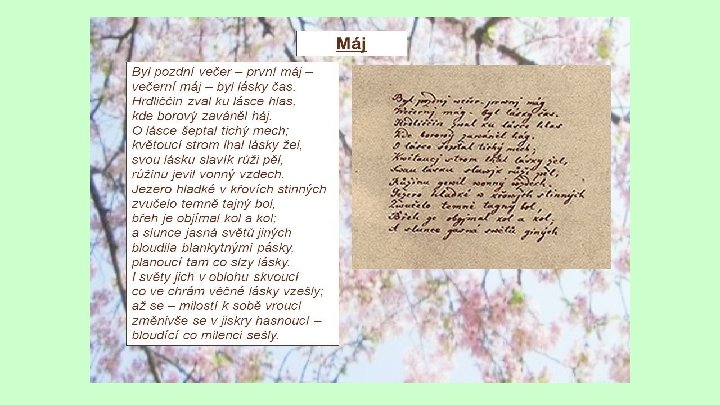 Máj
Byl pozdní večer – první máj –
večerní máj – byl lásky čas.
Hrdliččin zval ku lásce hlas,
kde borový zaváněl háj.
O lásce šeptal tichý mech;
květoucí strom lhal lásky žel,
svou lásku slavík růži pěl,
růžinu jevil vonný vzdech.
Jezero hladké v křovích stinných
zvučelo temně tajný bol,
břeh je objímal kol a kol;
a slunce jasná světů jiných
bloudila blankytnými pásky,
planoucí tam co slzy lásky.
I světy jich v oblohu skvoucí
co ve chrám věčné lásky vzešly;
až se – milostí k sobě vroucí
změnivše se v jiskry hasnoucí –
bloudící co milenci sešly.
Byl pozdnj wečer - prwnj mág
Wečernj mág - byl lásky čas.
Hrdliččin zwal ku lásce hlas
Kde borowý zawáněl hág.
O lásce šeptal tichý mech;
Kwětaucý strom lhal lásky žel,
Swau lásku slawjk růži pěl,
Růžinu gewil wonný wzdech.
Gezero hladké w křowjch stinných
Zwučelo temně tagný bol,
Břeh ge obgjmal kol a kol,
A slunce gasná swětů giných